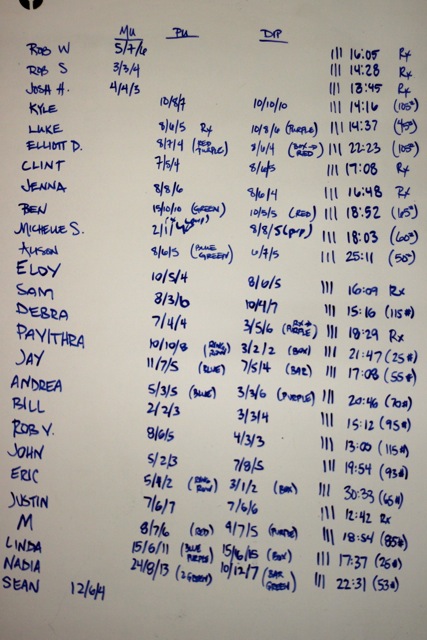 MU PU DIP
ROB W 5/7/6 III 16:05 Rx
ROB S 3/3/4 III 14:28 Rx
JOSH H. 4/4/3 III 13:45 Rx
KYLE 10/8/7 10/10/10 III 14:16 (105#)
LUKE 8/6/5 Rx 10/8/6 (PURPLE) III 14:37 (95#)
ELLIOTT D. 8/7/4 (RED PURPLE) 8/6/4 (BOX→RED) III 22:23 (105#)
CLINT 7/5/4 8/6/5 III 17:08 Rx
JENNA 8/8/6 8/6/4 III 16:48 Rx
BEN 15/10/10 (GREEN) 10/5/5 (RED) III 18:52 (65#)
MICHELLE S. 2/1/ 8/8/5 (PVP) III 18:03 (60#)
ALISON 8/6/5 (BLUE GREEN) 6/7/5 III 25:11 (50#)
ELOY 10/5/4 8/6/5 III 16:09 Rx
SAM 8/3/6 10/9/7 III 15:16 (115#)
DEBRA 7/4/4 3/5/6 (RX→PURPLE) III 18:29 Rx
PAVITHRA 10/10/8 (RING ROW) 3/2/2 (BOX) III 21:47 (25#)
JAY 11/7/5 (BLUE) 7/5/4 (BAR) III 17:08 (55#)
ANDREA 5/3/5 (BLUE) 3/3/6 (PURPLE) III 20:46 (70#)
BILL 2/2/3 3/3/4 III 15:12 (95#)
ROB V. 8/6/5 4/3/3 III 13:00 (115#)
JOHN 5/2/3 7/8/5 III 19:54 (93#)
ERIC 5/9/2 (RING ROW) 3/1/2 (BOX) III 30:33 (65#)
JUSTIN 7/6/7 7/6/6 III 12:42 Rx
M 8/7/6 (RED) 9/7/5 (PURPLE) III 18:54 (85#)
LINDA 15/6/11 (BLUE PURPLE) 15/6/15 (BOX) III 17:37 (26#)
NADIA 24/8/13 (2 GREEN) 10/12/7 (BAR GREEN) III 22:31 (53#)
SEAN 12/6/4